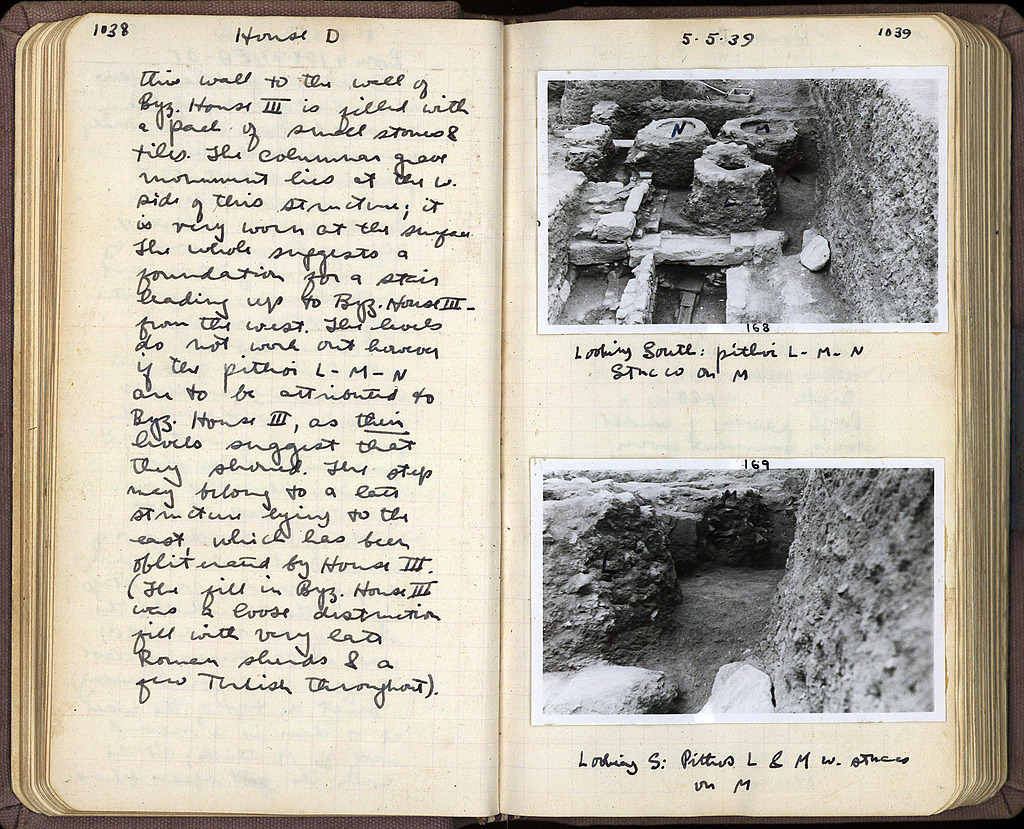 1038
House D
this wall to the wall of
Byz. House III is filled with
a pack of small stones &
tiles. The columnar grave
monument lies at the w.
side of this structure; it
is very worn at the surface
The whole suggests a
foundation for a stair
leading up to Byz. House III -
from the west. The levels
do not work out however
if the pithoi L - M - N
are to be attributed to
Byz. House III, as their
levels suggest that
they should. The step
may belong to a late
structure lying to the
east, which has been
obliterated by House III.
(The fill in Byz. House III
was a loose destruction
fill with very late
Roman sherds & a
few Turkish throughout).
5 - 5 - 39
1039
N
M
L
168
Looking South: pithoi L - M - N
Stucco on M
169
M
L
Looking S: Pithos L & M w. stucco
on M